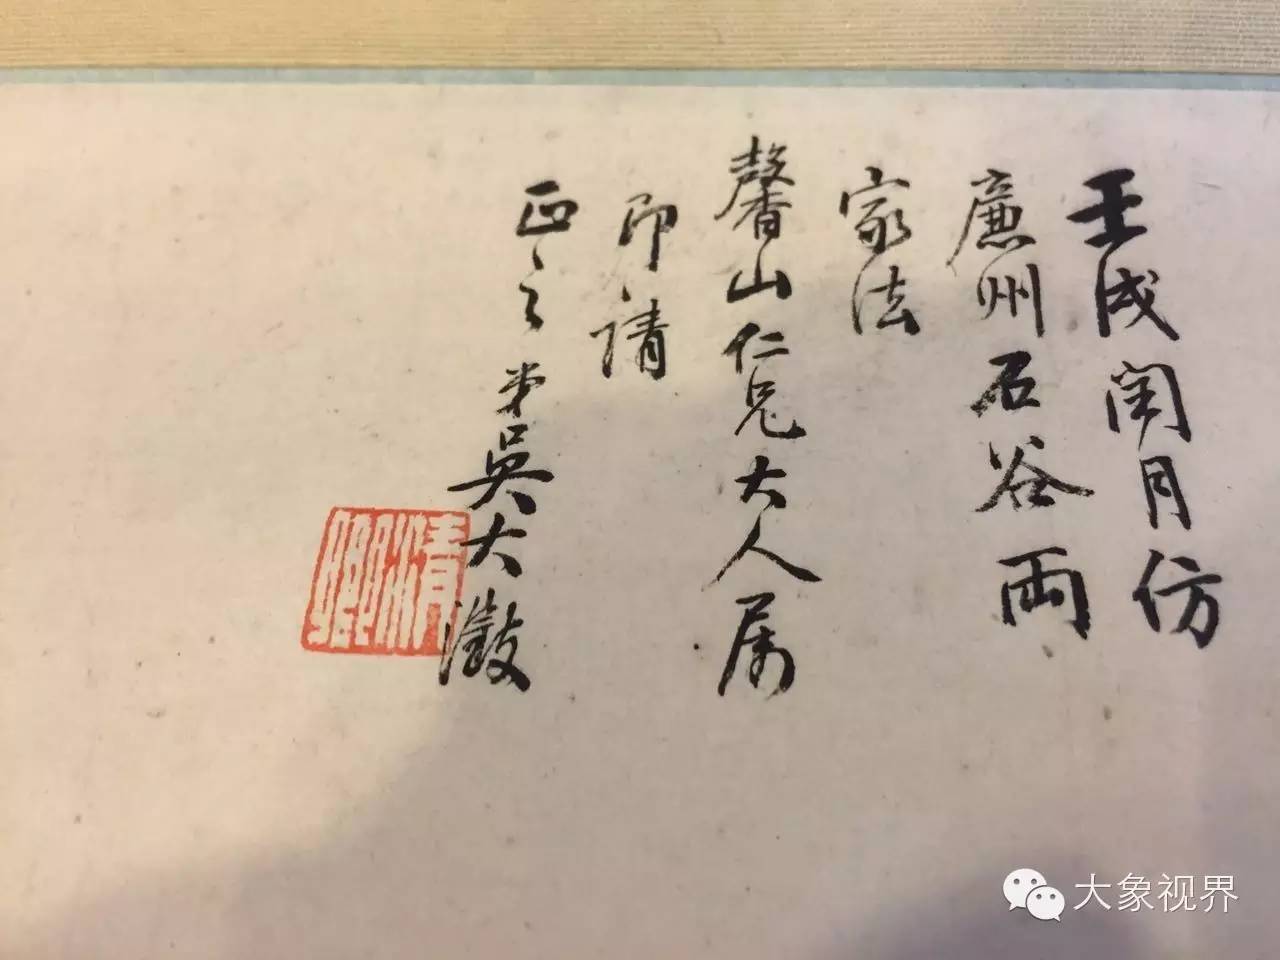 壬戌閏月仿
廉州石谷两
家法
馨山仁兄大人属
即請
正之 弟吳大澂
清卿
大象视界